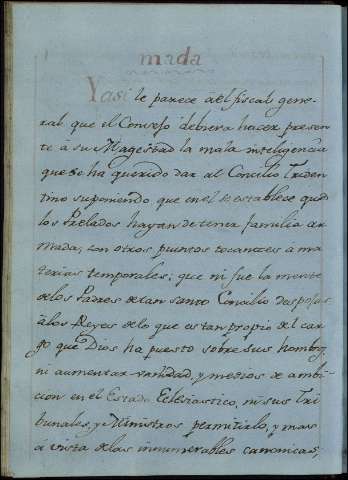 mada
Y asi le parece à el fiscal gene-
ral que el Consejo debiera hacer presen
te à su Magestad la mala inteligencia
que se ha querido dar al Concilio Triden
tino suponiendo que en el se establece que
los Prelados hayan de tener familia ar
mada, con otros puntos tocantes à ma
terias temporales; que ni fue la mente
de los Padres de tan santo Concilio despojar
à los Reyes de lo que es tan propio del car
go que Dios ha puesto sobre sus hombros,
ni aumentar vanidad, y medios de ambi
cion en el Estado Eclesiastico, ni sus Tri
bunales, y Ministros permitirlo, y mas
à vista de las innumerables canonicas,